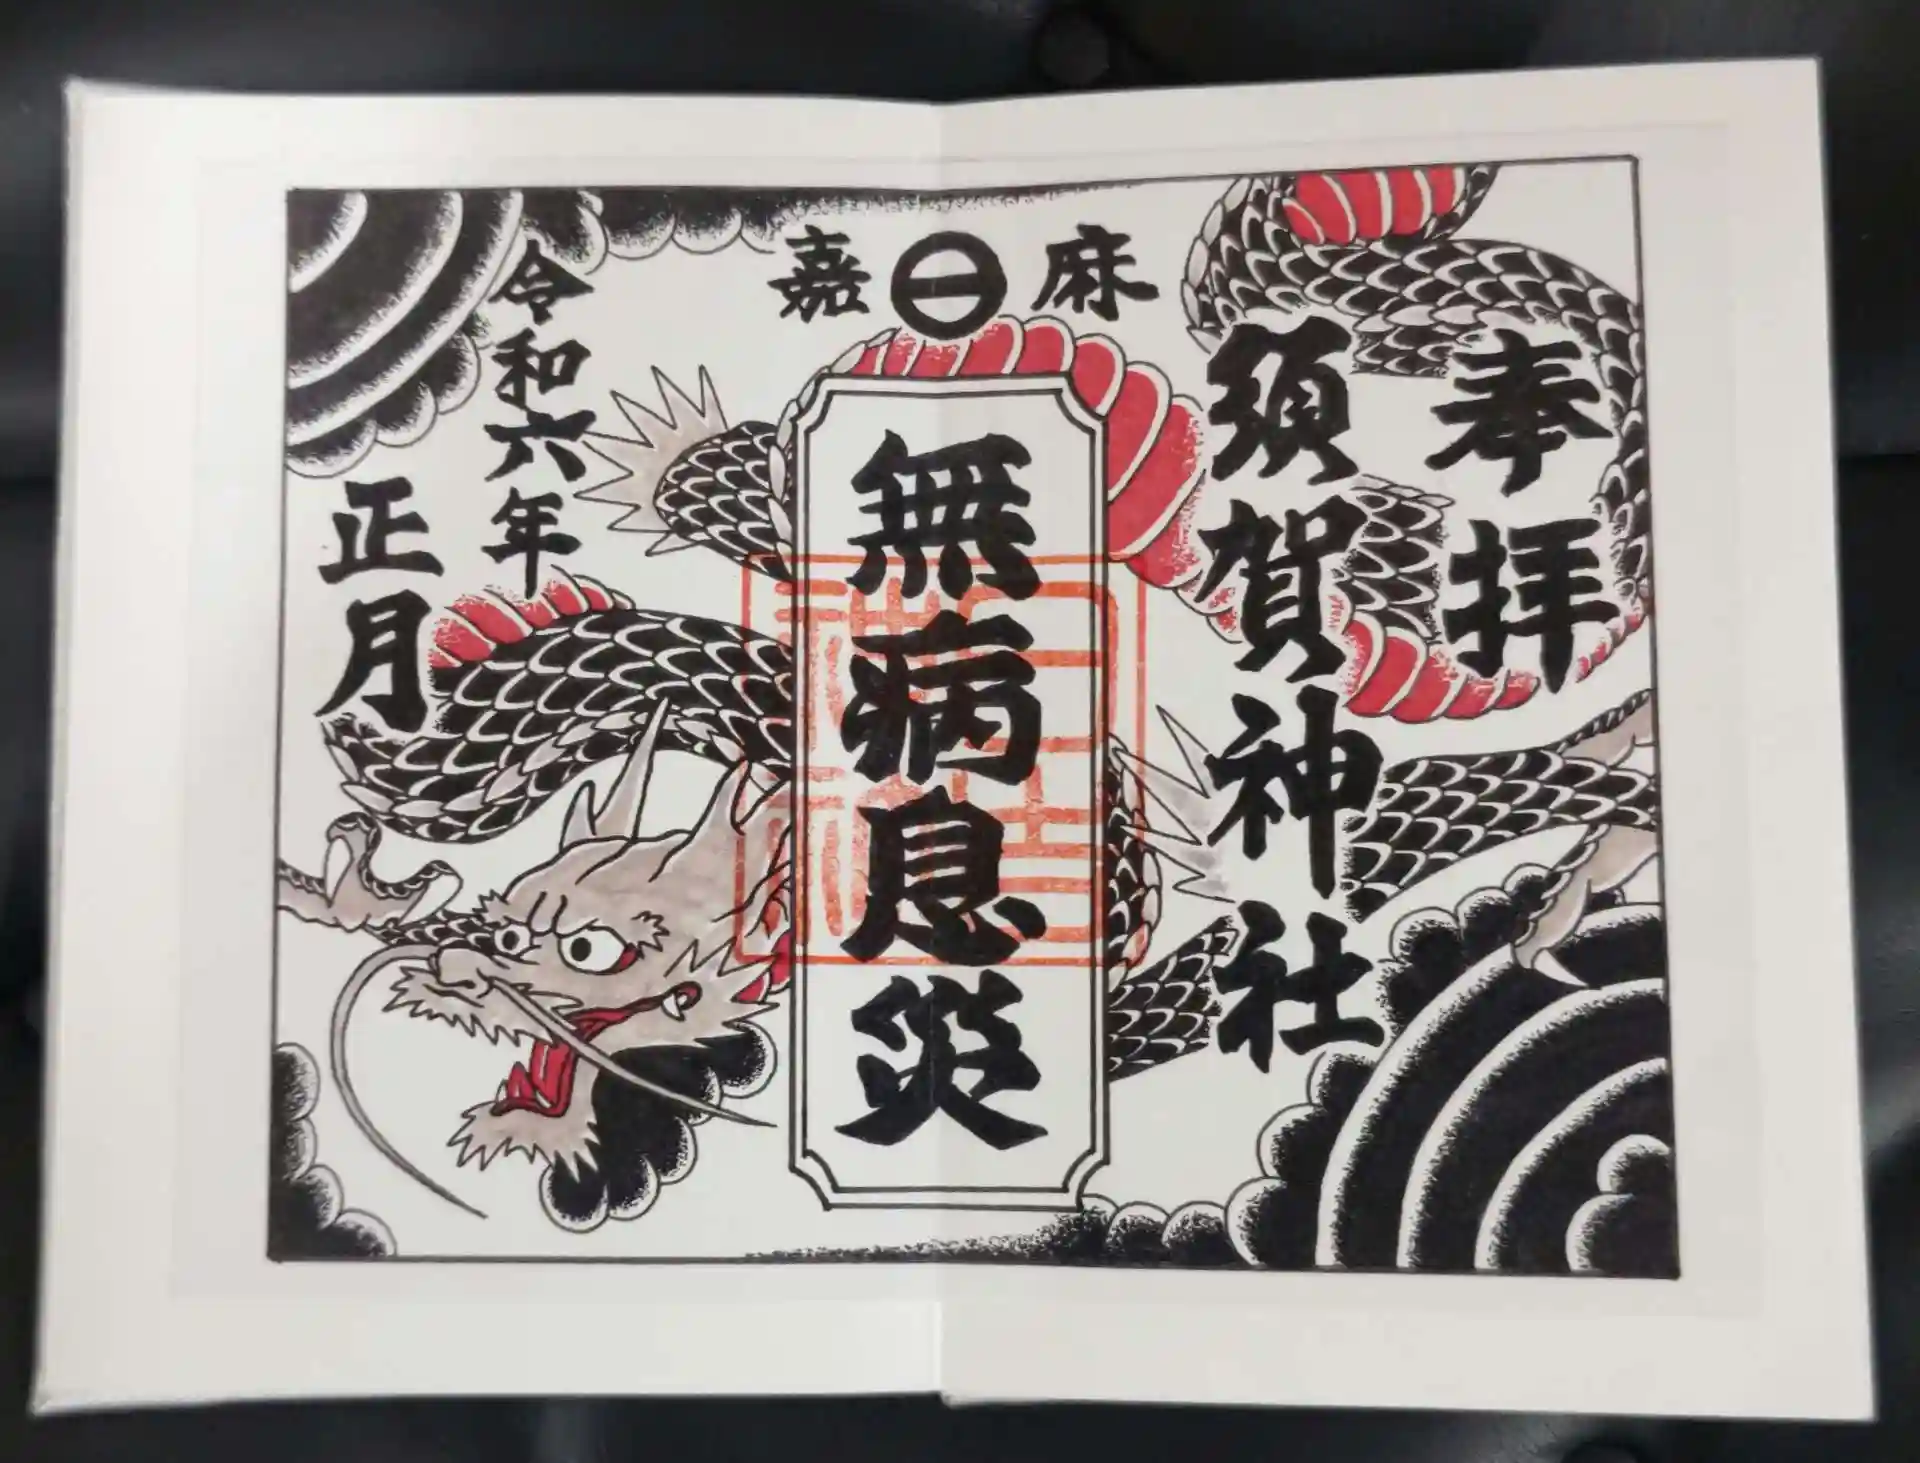 奉拝
須賀神社
嘉㊀麻
無病息災
令和六年
正月